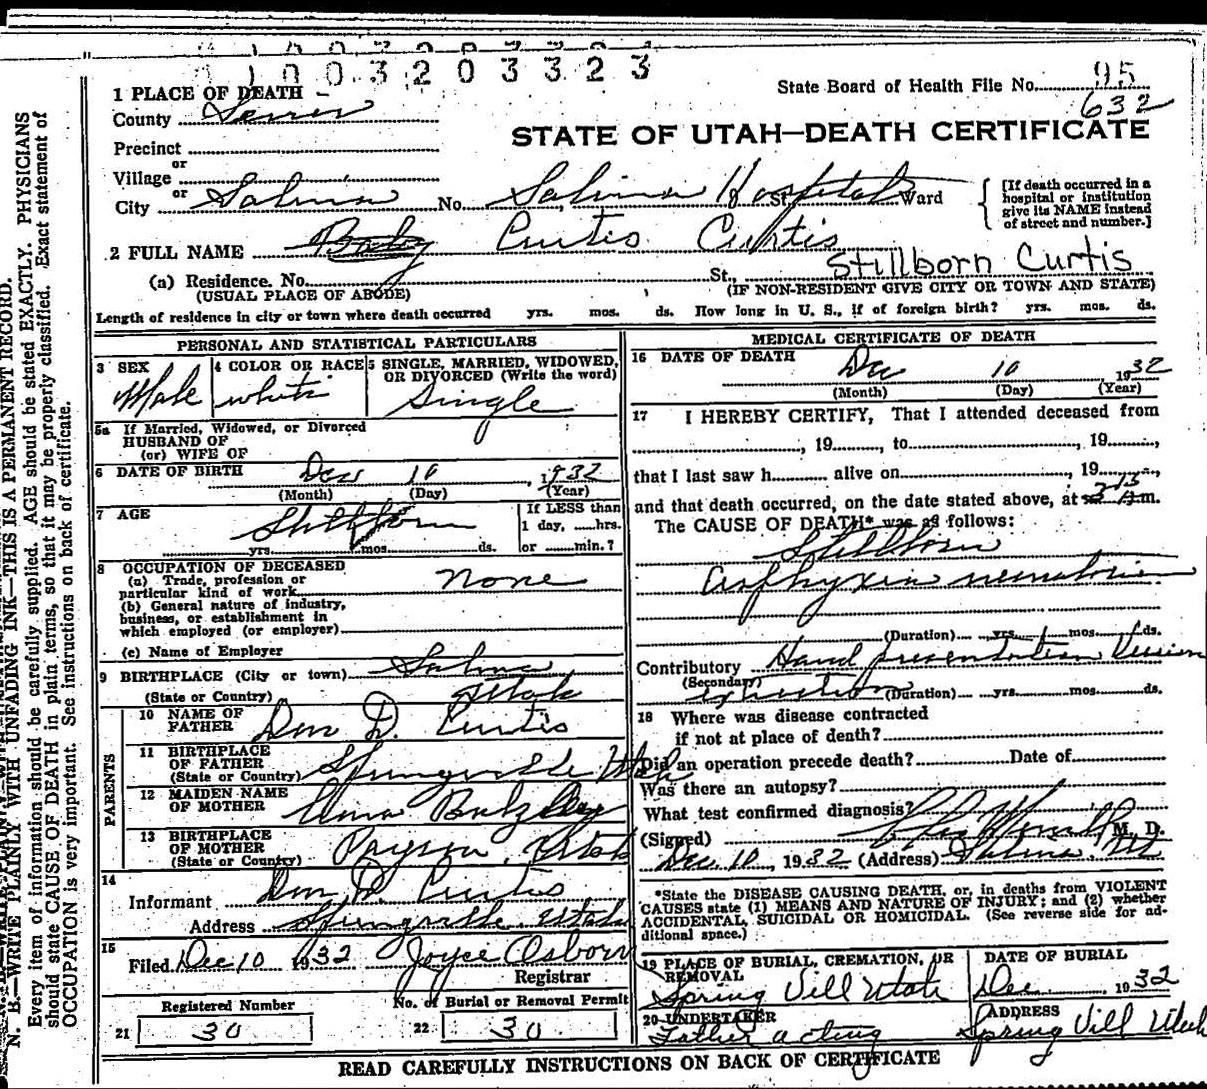 1003203323
State Board of Health File No. 95
632
1 PLACE OF DEATH
County
STATE OF UTAH—DEATH CERTIFICATE
Precinct
or
Village
or
City Salina No. Salina Hospital St. Ward
[If death occurred in a hospital or institution give its NAME instead of street and number.]
2 FULL NAME Baby Curtis Curtis
Stillborn Curtis
(a) Residence. No. St.,
(USUAL PLACE OF ABODE) (IF NON-RESIDENT GIVE CITY OR TOWN AND STATE)
Length of residence in city or town where death occurred yrs. mos. ds. How long in U. S., if of foreign birth? yrs. mos. ds.
PERSONAL AND STATISTICAL PARTICULARS
3 SEX 4 COLOR OR RACE 5 SINGLE, MARRIED, WIDOWED, OR DIVORCED (Write the word)
Male white Single
5a If Married, Widowed, or Divorced
HUSBAND OF
(or) WIFE OF
6 DATE OF BIRTH Dec 10, 1932
(Month) (Day) (Year)
7 AGE Stillborn If LESS than
1 day, ......hrs.
yrs. mos. ds. or ......min.?
8 OCCUPATION OF DECEASED
(a) Trade, profession or
particular kind of work none
(b) General nature of industry,
business, or establishment in
which employed (or employer)
(c) Name of Employer
9 BIRTHPLACE (City or town) Salina
(State or Country) Utah
PARENTS
10 NAME OF FATHER Don D. Curtis
11 BIRTHPLACE OF FATHER (State or Country) Springville Utah
12 MAIDEN NAME OF MOTHER
13 BIRTHPLACE OF MOTHER (State or Country) Payson, Utah
14
Informant Don D. Curtis
Address Springville Utah
15
Filed Dec 10 1932 Joyce Osborn
Registrar
Registered Number No. of Burial or Removal Permit
21 30 22 30
MEDICAL CERTIFICATE OF DEATH
16 DATE OF DEATH Dec 10 1932
(Month) (Day) (Year)
17 I HEREBY CERTIFY, That I attended deceased from
, 19 , to , 19 ,
that I last saw h alive on , 19 ,
and that death occurred, on the date stated above, at m.
The CAUSE OF DEATH* was as follows:
Stillborn
(Duration) yrs. mos. ds.
Contributory Hand presentation Version
(Secondary) extraction (Duration) yrs. mos. ds.
18 Where was disease contracted
if not at place of death?
Did an operation precede death? Date of
Was there an autopsy?
What test confirmed diagnosis?
(Signed) M. D.
Dec 10, 1932 (Address) Salina, Ut
*State the DISEASE CAUSING DEATH, or, in deaths from VIOLENT
CAUSES state (1) MEANS AND NATURE OF INJURY; and (2) whether
ACCIDENTAL, SUICIDAL OR HOMICIDAL. (See reverse side for ad-
ditional space.)
19 PLACE OF BURIAL, CREMATION, OR REMOVAL DATE OF BURIAL
Spring Vill Utah Dec 1932
20 UNDERTAKER ADDRESS
Father acting Spring Vill Utah
READ CAREFULLY INSTRUCTIONS ON BACK OF CERTIFICATE
N. B.—WRITE PLAINLY WITH UNFADING INK—THIS IS A PERMANENT RECORD.
Every item of information should be carefully supplied. AGE should be stated EXACTLY. PHYSICIANS
should state CAUSE OF DEATH in plain terms, so that it may be properly classified. Exact statement of
OCCUPATION is very important. See instructions on back of certificate.